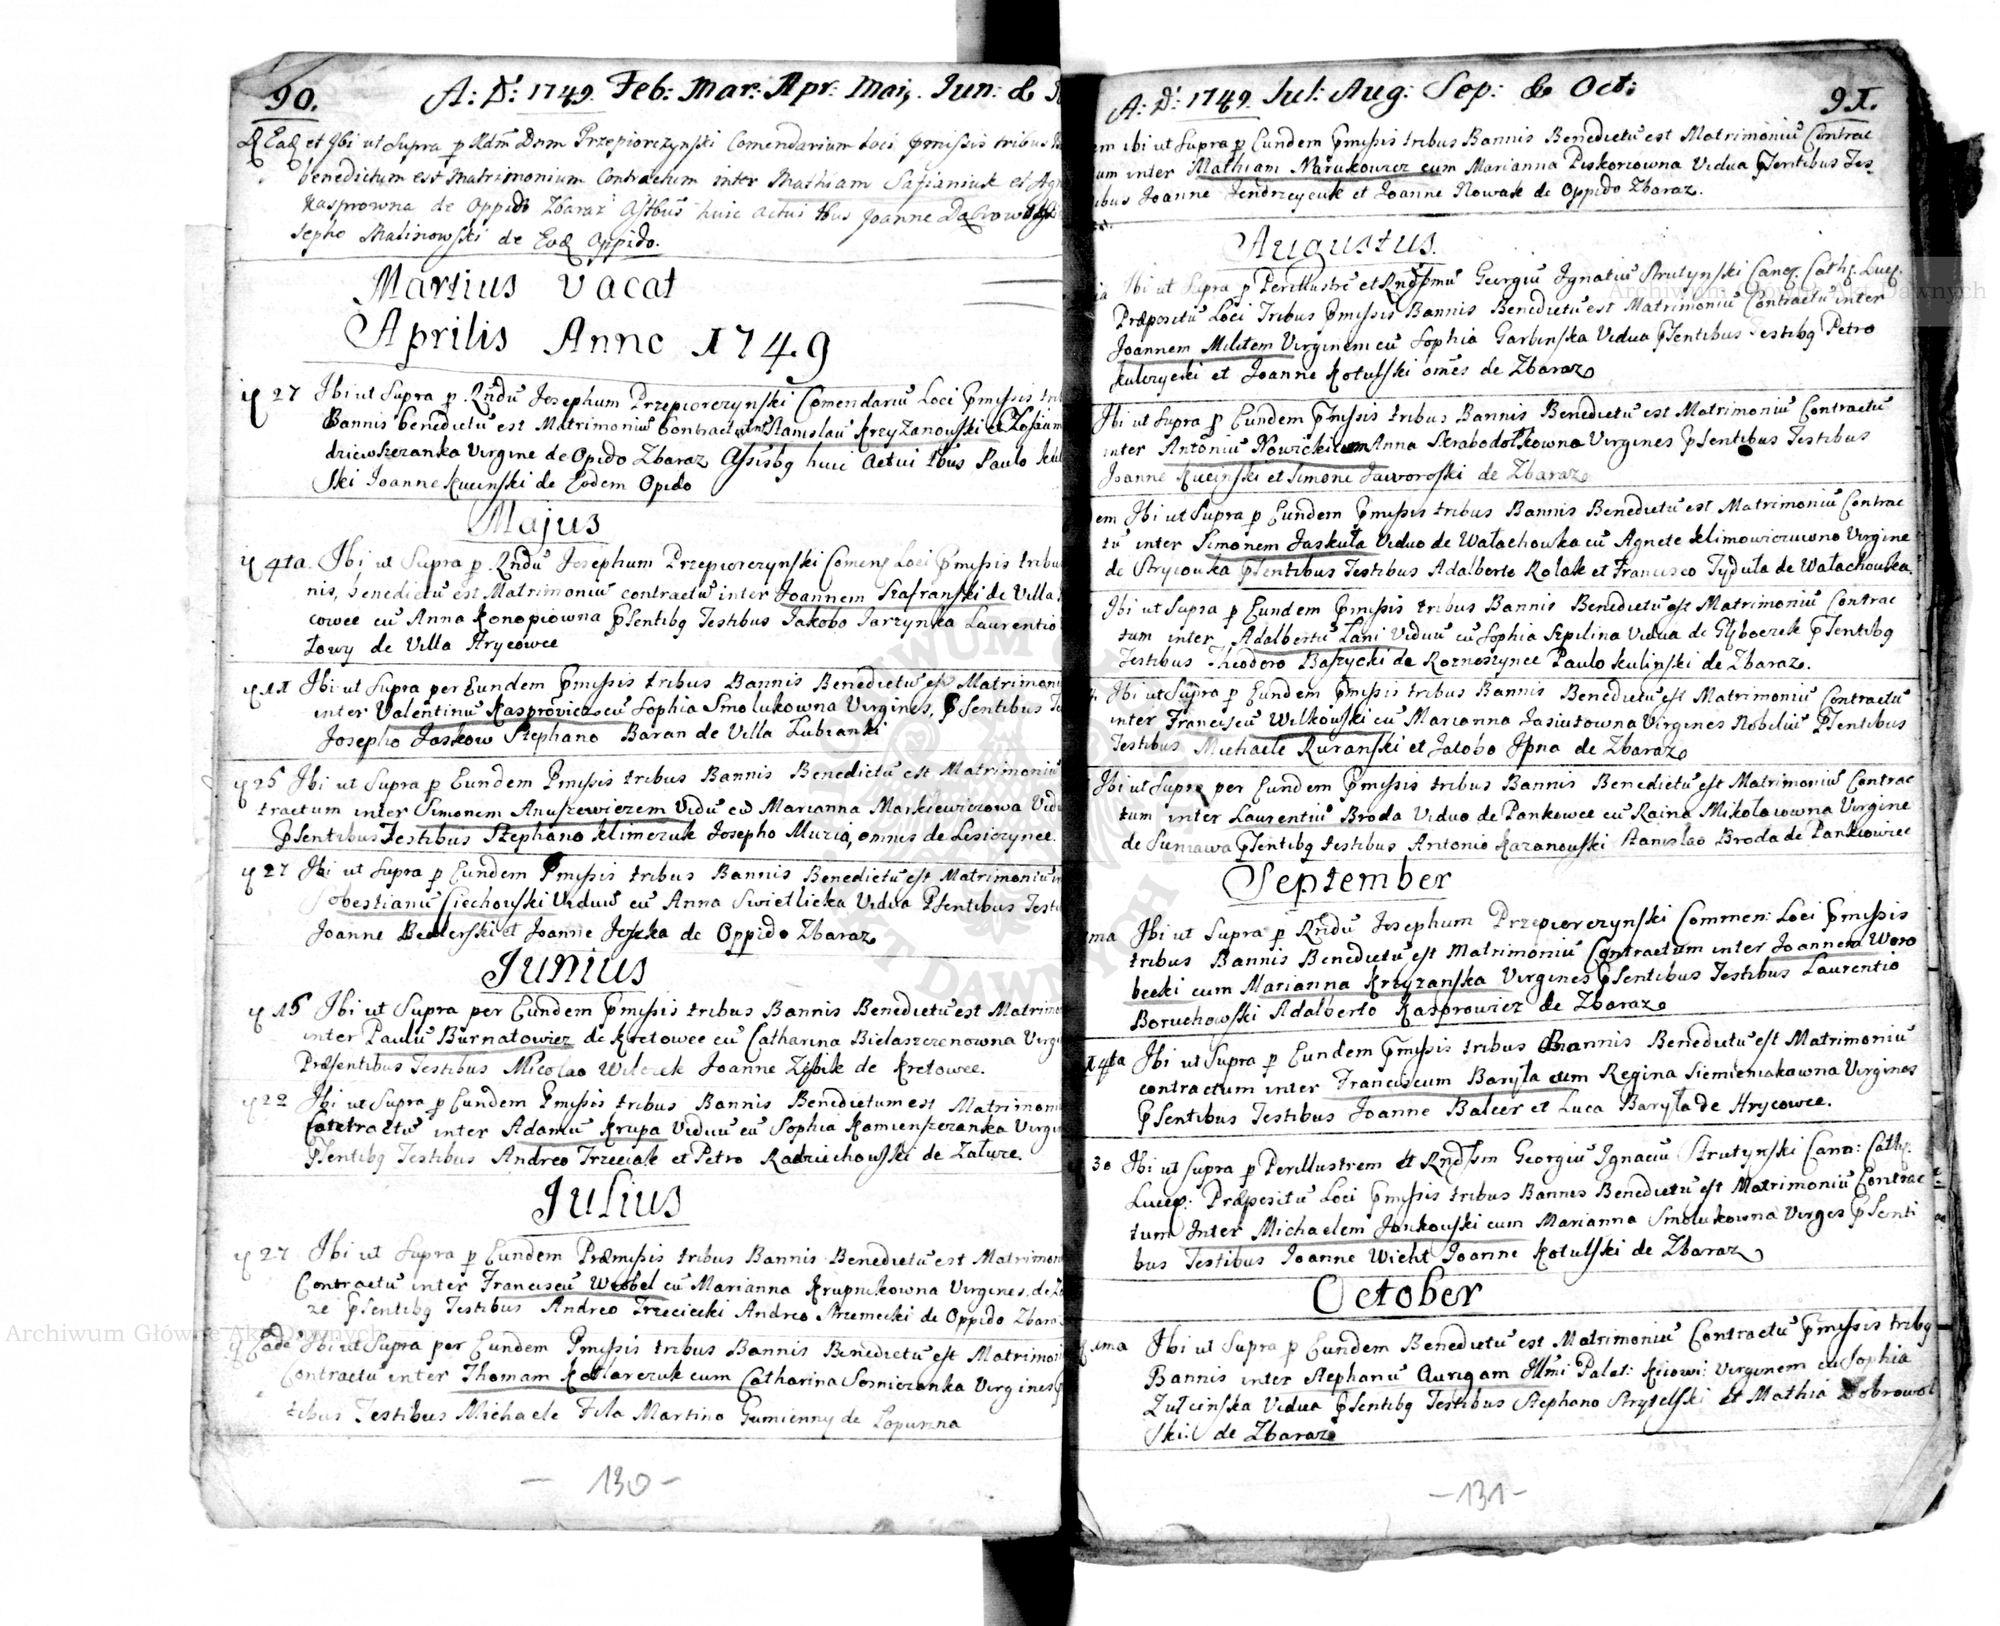 90.
A: D: 1749. Feb: Mar: Apr: Maij. Jun: &
et Ibi ut Supra p Rdm Dnm Przepiorczynski Comendarium Loci pmissis tribus
benedictum est Matrimonium Contractum inter Mathiam Safianiuk et
Kasprowna de Oppido Zbaraz Astbus huic actui tbus Joanne
sepho Malinowski de Eod Oppido.
Martius Vacat
Aprilis Anno 1749
27 Ibi ut Supra p Rndu Josephum Przepiorczynski Comendariu Loci pmissis
Bannis benedictu est Matrimoniu Contractu int Stanislau Krzyzanowski et
dziewszezanka Virgine de Opido Zbaraz Assisbg huic Actui tbus Paulo
ski Joanne Kucinski de Eodem Opido
Majus
4ta. Ibi ut Supra p Rndu Josephum Przepiorczynski Comen Loci pmissis tribus
nis, benedictu est Matrimoniu contractu inter Joannem Szafranski de Villa
cowce cu Anna Konopiowna psentibg Testibus Jakobo Jarzynka Laurentio
towy de Villa Hrycowce
11 Ibi ut Supra per Eundem pmissis tribus Bannis Benedictu est Matrimoniu
inter Valentinu Kasprovicz cu Sophia Smolukowna Virgines, psentibus
Josepho Jaskow Stephano Baran de Villa Lubianki
25 Ibi ut Supra p Eundem Pmissis tribus Bannis Benedictu est Matrimoniu
tractum inter Simonem Anuszewiczem Vidu cu Marianna Markiewiczowa
psentibus Testibus Stephano Klimczuk Josepho Muzia, omnes de Lesiczynce.
27 Ibi ut Supra p Eundem Pmissis tribus Bannis Benedictu est Matrimoniu
Sobestianu Ciechowski Viduu cu Anna Swietlicka Vidua Psentibus
Joanne Bednerski et Joanne Jeszka de Oppido Zbaraz
Junius
15 Ibi ut Supra per Eundem pmissis tribus Bannis Benedictu est
inter Paulu Burnatowicz de Kretowce cu Catharina Bielaszczenowna
Præsentibus Testibus Nicolao Wilczek Joanne Zybik de Kretowce.
22 Ibi ut Supra p Eundem Pmissis tribus Bannis Benedictum est
Contractu inter Adamu Krupa Viduu cu Sophia Kamienszczanka
psentibg Testibus Andreo Trzeciak et Petro Radziechowski de Zaluze.
Julius
27 Ibi ut Supra p Eundem Præmissis tribus Bannis Benedictu est
Contractu inter Franciscu Wrobel cu Marianna Krupnikowna Virgines. de
ze psentibg Testibus Andreo Trzeciecki Andreo Strzemecki de Oppido
Eade Ibi ut Supra per Eundem Pmissis tribus Bannis Benedictu est
Contractu inter Thomam Kotlarczuk cum Catharina Sosniczanka Virgines
tibus Testibus Michaele Fila Martino Gumienny de Lopuszna
- 130 -
A: D: 1749. Jul: Aug: Sep: & Oct:
91.
ibi ut Supra p Eundem pmissis tribus Bannis Benedictu est Matrimoniu Contrac
um inter Mathiam Marukowicz cum Marianna Piskorzowna Vidua psentibus Tes
ibus Joanne Jendrzeyczuk et Joanne Nowak de Oppido Zbaraz.
Augustus.
Ibi ut Supra p Perillustre et Rndssmu Georgiu Ignatiu Strutynski Canc. Cath. Luc.
Præpositu Loci Tribus pmissis Bannis Benedictu est Matrimoniu Contractu inter
Joannem Militem Virginem cu Sophia Garbinska Vidua psentibus Testibg Petro
Kulczycki et Joanne Kotulski omes de Zbaraz
Ibi ut Supra p Eundem pmissis tribus Bannis Benedictu est Matrimoniu Contractu
inter Antoniu Nowicki cum Anna Skrabodolkowna Virgines psentibus Testibus
Joanne Kucinski et Simone Jaworoski de Zbaraz
em Ibi ut Supra p Eundem pmissis tribus Bannis Benedictu est Matrimoniu Contrac
tu inter Simonem Jaskula Viduo de Walachowka cu Agnete Klimowiczuwno Virgine
de Stryiowka psentibus Testibus Adalberto Kolak et Francisco Tydula de Walachowka.
Ibi ut Supra p Eundem pmissis tribus Bannis Benedictu est Matrimoniu Contrac
tum inter Adalbertu Lani Viduu cu Sophia Szpilina Vidua de Glyboczek psentibg
Testibus Theodoro Baszycki de Roznoszynce Paulo Kulinski de Zbaraz.
Ibi ut Supra p Eundem pmissis tribus Bannis Benedictu est Matrimoniu Contractu
inter Franciscu Wilkowski cu Marianna Jasiutowna Virgines Nobiliu psentibus
Testibus Michaele Kuranski et Jacobo de Zbaraz
Ibi ut Supra per Eundem pmissis tribus Bannis Benedictu est Matrimoniu Contrac
tum inter Laurentiu Broda Viduo de Pankowce cu Raina Mikolaiowna Virgine
de Suniawa psentibg testibus Antonio Kazanowski Stanislao Broda de Pankiowice
September
ma Ibi ut Supra p Rndu Josephum Przepiorczynski Commen: Loci pmissis
tribus Bannis Benedictu est Matrimoniu Contractum inter Joannem Woro
becki cum Marianna Krzyzanska Virgines psentibus Testibus Laurentio
Boruchowski Adalberto Kasprowicz de Zbaraz
14ta Ibi ut Supra p Eundem pmissis tribus Bannis Benedictu est Matrimoniu
contractum inter Franciscum Baryla cum Regina Siemieniakowna Virgines
psentibus Testibus Joanne Balcer et Luca Baryla de Hrycowce.
30 Ibi ut Supra p Perillustrem et Rndssm Georgiu Ignaciu Strutynski Cann: Cath.
Luce: Præpositu Loci pmissis tribus Bannes Benedictu est Matrimoniu Contrac
tum Inter Michaelem Jankowski cum Marianna Smolukowna Virges psenti
bus Testibus Joanne Wicht Joanne Kotulski de Zbaraz
October
ima Ibi ut Supra p Eundem Benedictu est Matrimoniu Contractu pmissis tribg
Bannis inter Stephanu Aurigam Illmi Palat: Kiiowi: Virginem cu Sophia
Zulcinska Vidua psentibg Testibus Stephano Strytelski et Mathia Dobrowol
ski: de Zbaraz
- 131 -
Archiwum Główne Akt Dawnych
Archiwum Główne Akt Dawnych
ARCHIWUM GŁÓWNE AKT DAWNYCH